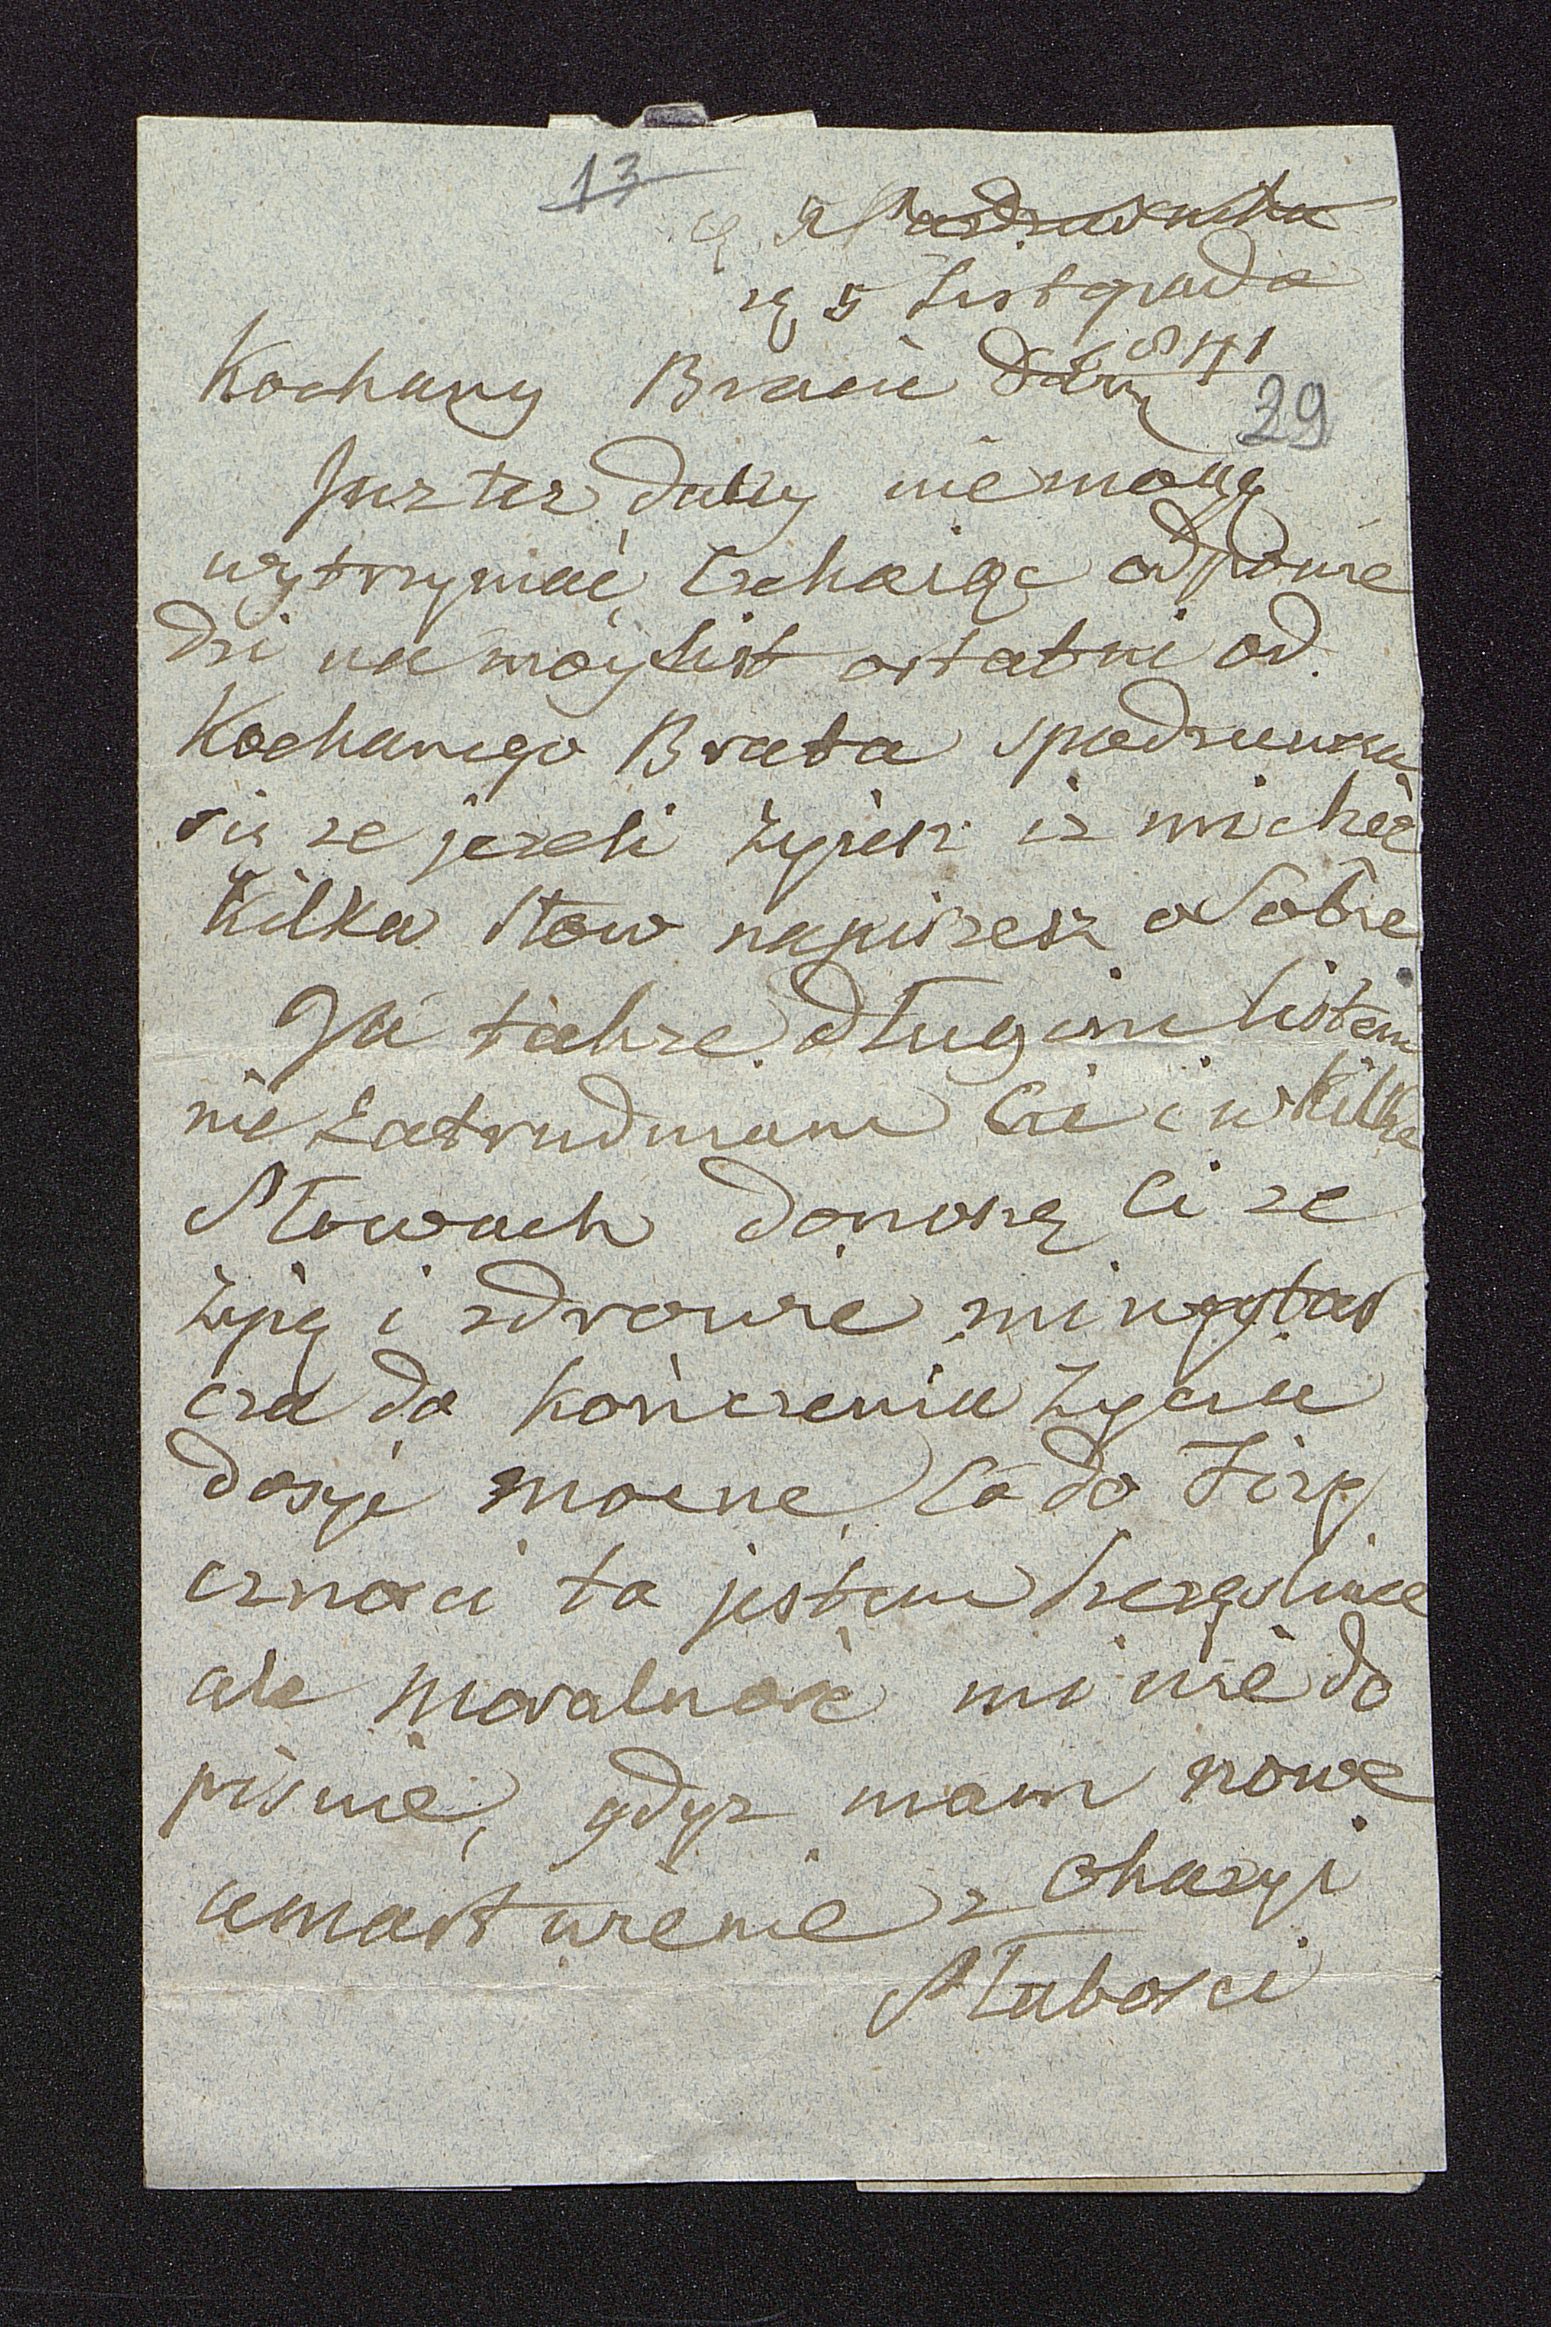 13
5 Listopada
841
Kochany Bracie
29
Jusz tesz daley nie mogę
wytrzymać, czekaiąc odpowie
dzi na móy List ostatni od
Kochanego Brata spodziewam
się ze jezeli żyjesz iz mi choć
Kilka Słow napiszesz o Sobie
Ja takze długim listem
nie Zatrudniam Cie i w Kilku
Słowach donoszę Ci ze
żyję i zdrowie mi wystar
cza do kończenia życia
dosyć mocne, Co do Fizy
cznosci to jestem szczęśliwa
ale moralność mi nie do
pisuie, gdyz mam nowe
umartwienie z Okazyi
Słabosci